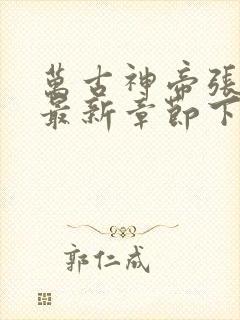 萬古神帝張
最新章節下
郭仁成